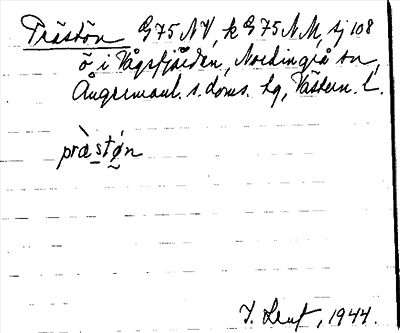 Prästön G75NV, k G75NM, sj 108
ö i Vågsfjärden, Nordingrå sn,
Ångermanl. s. doms. hg, Västern. l.
præstǿn
1944.